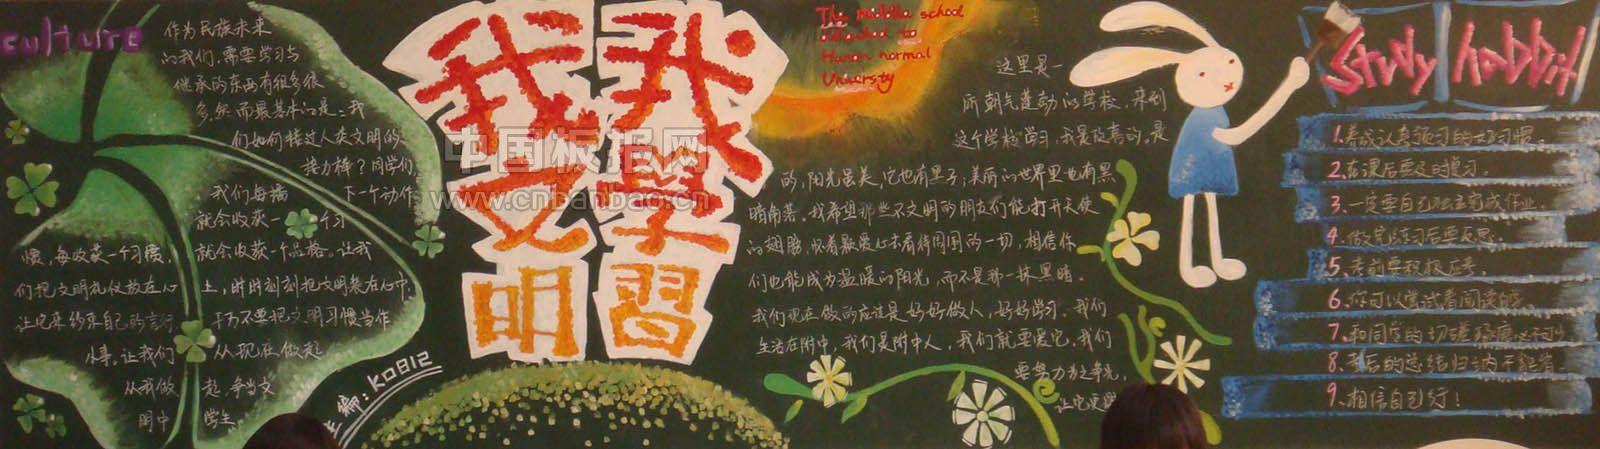 culture
作为民族未来
的我们,需要学习与
继承的东西有很多很
多,然而最基本的是:我
们如何接过人类文明的
接力棒?同学们,
我们每播 下一个动作
就会收获一 个习
惯,每收获一个习惯 就会收获一个品格。让我
们把文明礼仪放在心 上,时时刻刻把文明装在心中,
让它来约束自己的言行 千万不要把文明习惯当作
小事。让我们 从现在做起
从我做 起,争当文
明中 学生
主编:K0812
我文明
我学习
中国板报网
www.cnbanbao.cn
The middlle school
attached to
Hunan normal
University
这里是一
所朝气蓬勃的学校,来到
这个学校学习,我是应高的。是
的,阳光虽美,它也有黑子;美丽的世界里也有黑
暗角落。我希望那些不文明的朋友们能打开天使
的翅膀,怀着颗爱心去看待周围的一切,相信你
们也能成为温暖的阳光,而不是那一抹黑暗。
我们现在做的应该是好好做人,好好学习。我们
生活在附中,我们是附中人,我们就要爱它,我们
要努力为之争光,
让它更
Study habbit
1.养成认真预习的好习惯。
2.在课后要及时复习。
3.一定要自己独立完成作业。
4.做完练习后要反思。
5.考前要积极应考。
6.你可以尝试着阅读自
7.和同学的切磋琢磨必不可少
8.考后的总结归纳不能省。
9.相信自己行!